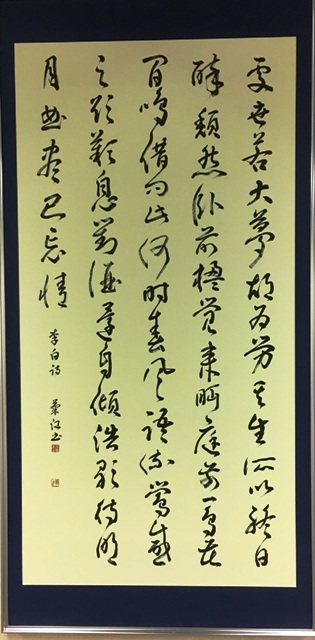 處世若大夢胡为勞其生所以終日
醉頹然卧前楹覺来眄庭前一鳥花
間鳴借问此何时春風語流鶯感
之欲歎息對酒還自傾浩歌待明
月曲盡已忘情
李白诗 江书